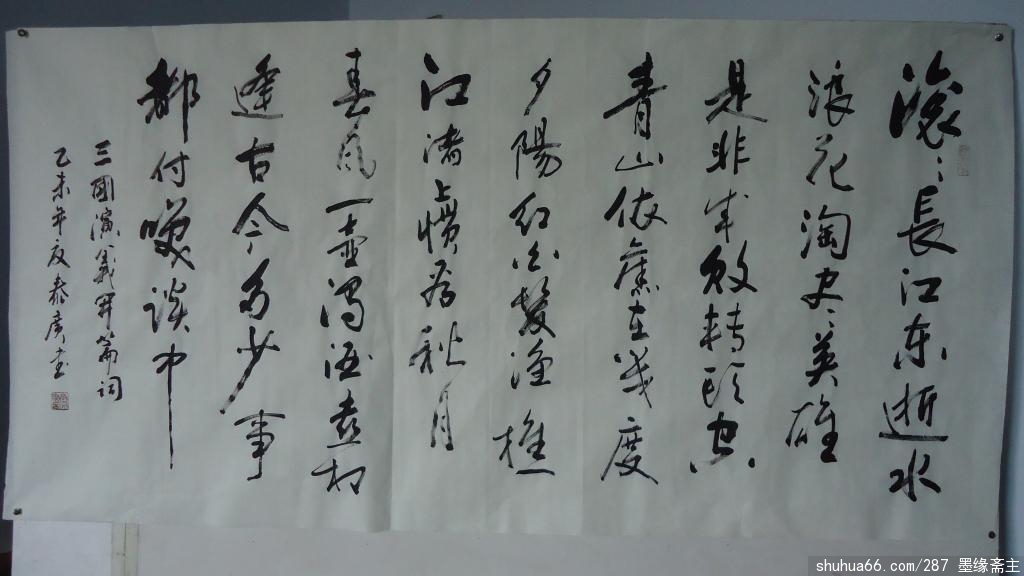 滚〻長江东逝水
浪花淘尽英雄
是非成敗轉頭空
青山依舊在幾度
夕陽红白髮渔樵
江渚上慣看秋月
春風一壶濁酒喜相
逢古今多少事
都付笑談中
三國演義開篇詞
乙未年夏泰书
shuhua66.com/287 墨缘斋主